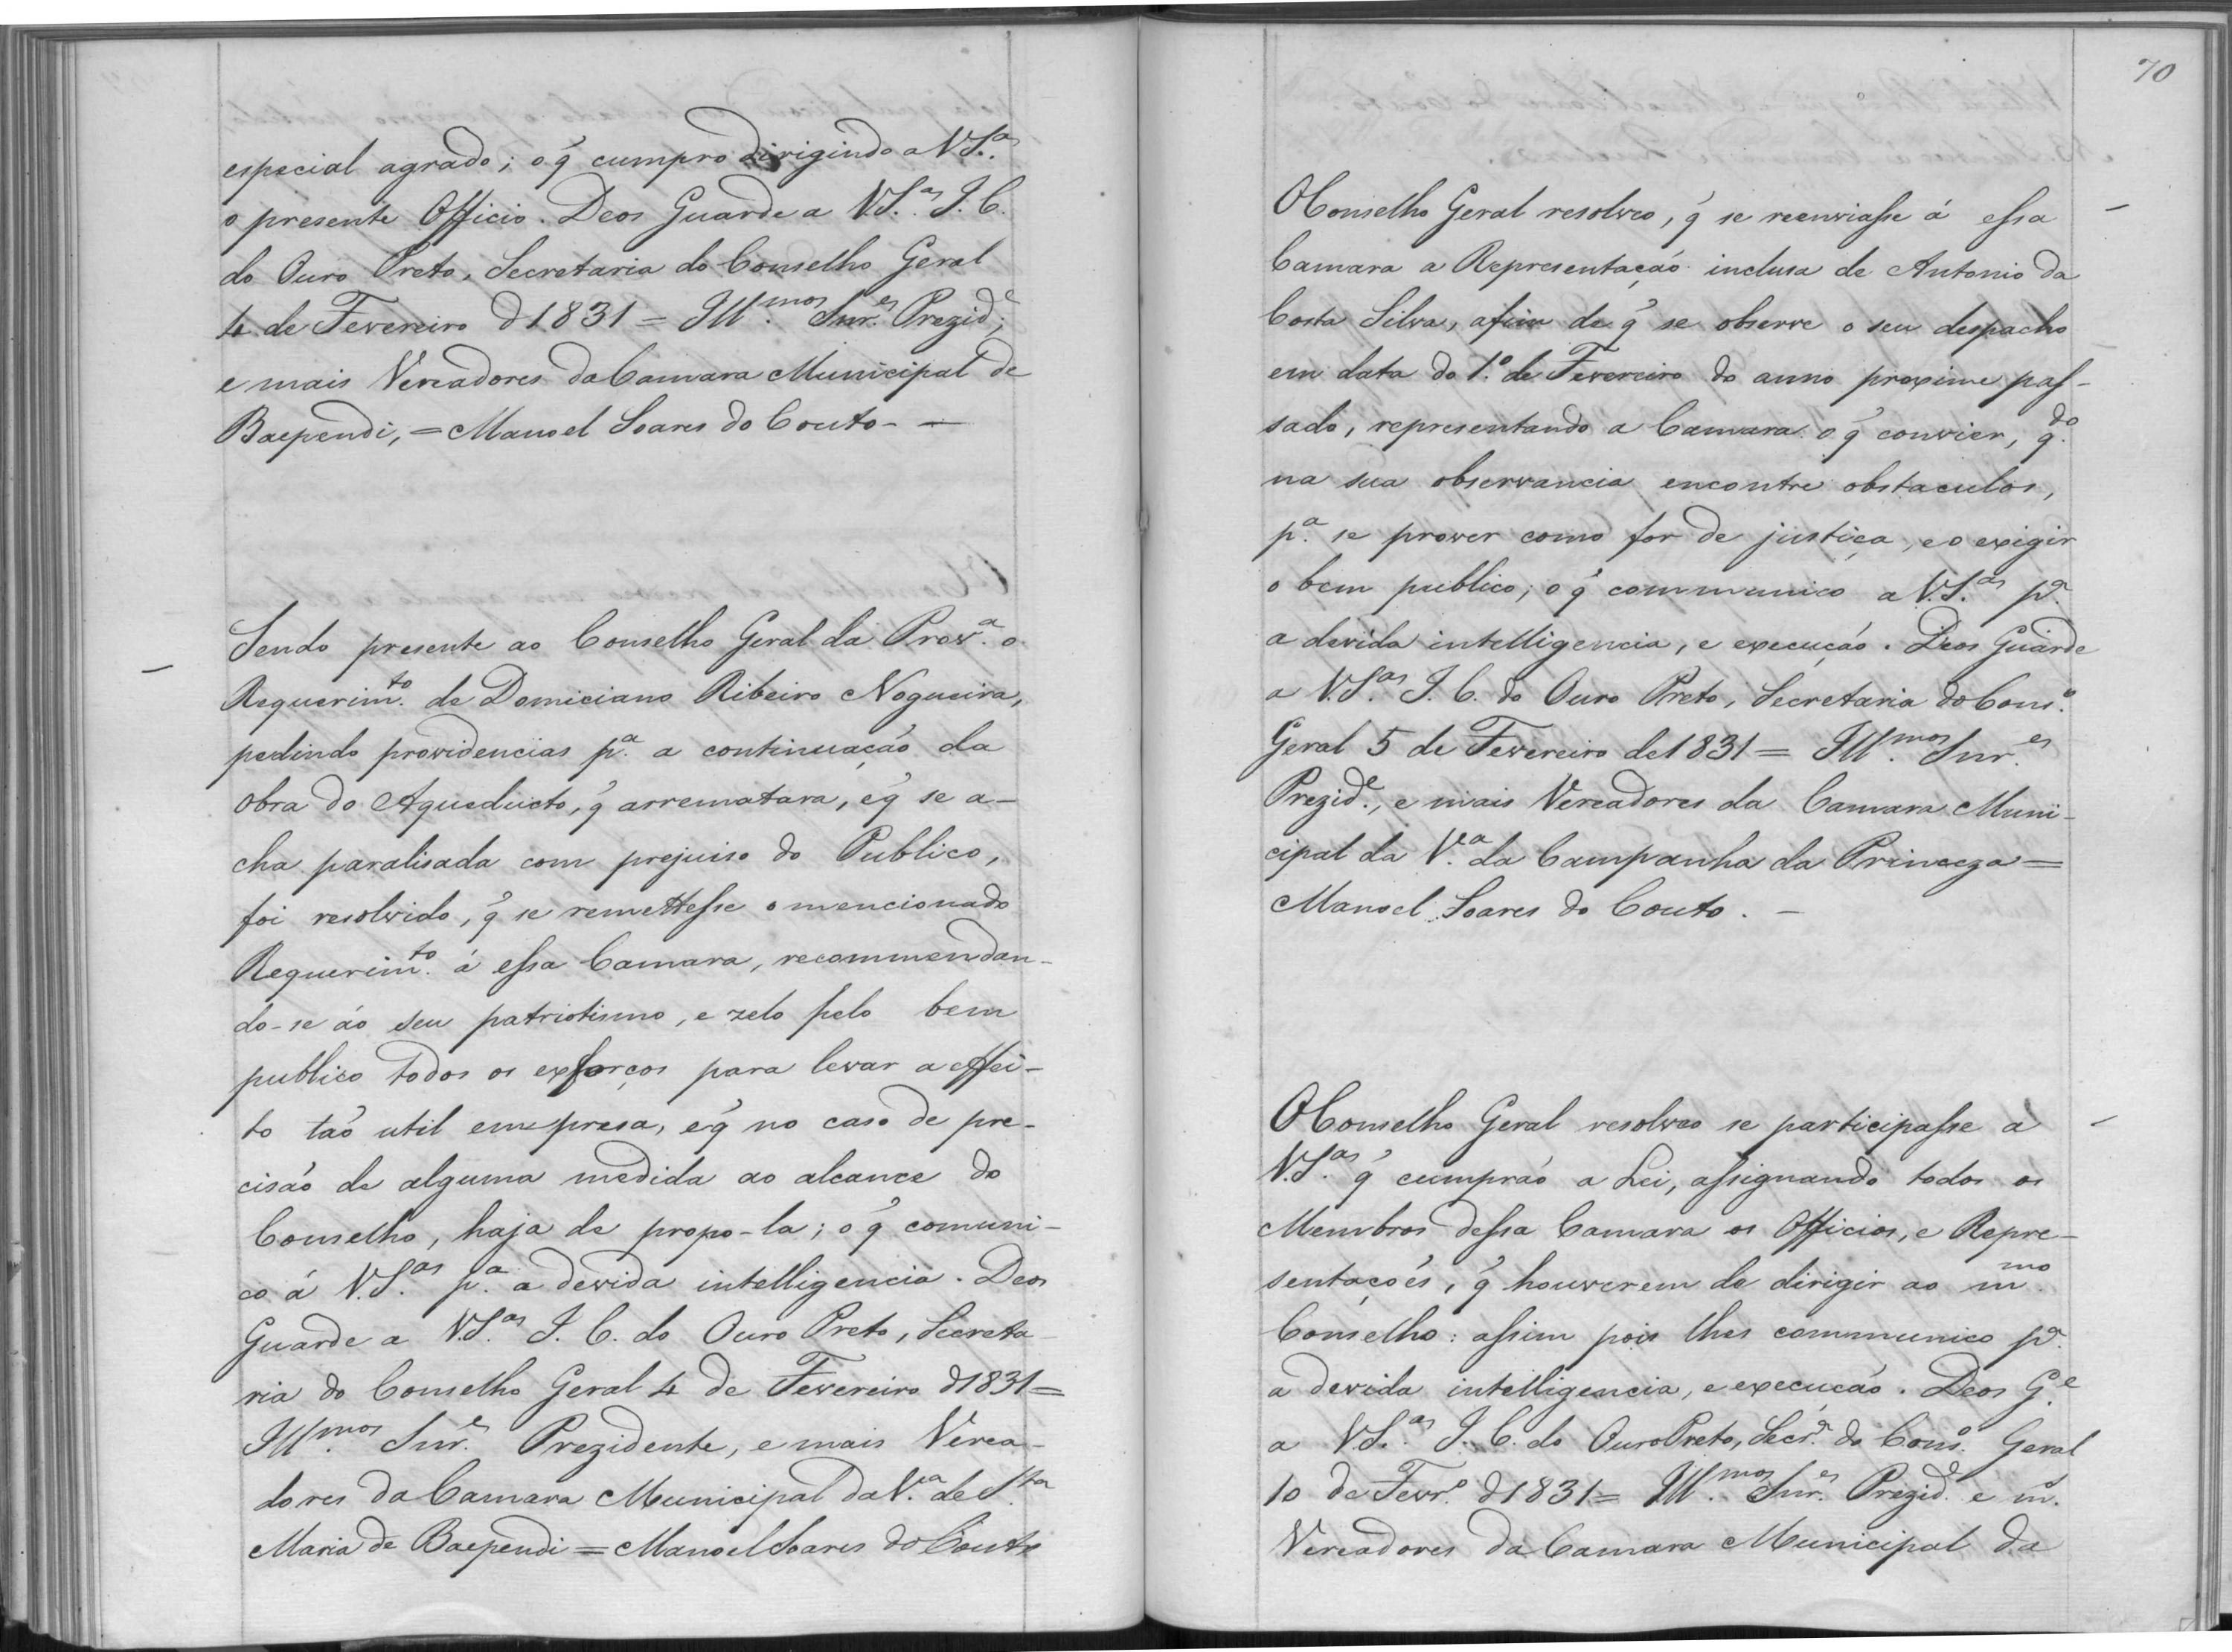 especial agrado; o q̃ cumpro dirigindo a V.S.as
o presente Officio. Deos Guarde a V.S.as I.C.
do Ouro Preto, Secretaria do Conselho Geral
4 de Fevereiro d 1831 = Ill.mos Snr.es Prezid.e,
e mais Vereadores da Camara Municipal de
Baependi, = Manoel Soares do Couto - -
Sendo presente ao Conselho Geral da Prov.a o
Requerim.to de Domiciano Ribeiro Nogueira,
pedindo providencias p.a a continuação da
obra do Aqueducto, q̃ arrematara, e q̃ se a-
cha paralisada com prejuiso do Publico,
foi resolvido, q̃ se remettesse o mencionado
Requerim.to á essa Camara, recommendan-
do-se áo seu patriotismo, e zelo pelo bem
publico todos os exforços para levar a effei-
to táo util empresa, e q̃ no caso de pre-
cisáo de alguma medida ao alcance do
Conselho, haja de propo-la; o q̃ comuni-
co á V.S.as p.a a devida intelligencia. Deos
Guarde a V.S.as I.C. do Ouro Preto, Secreta-
ria do Conselho Geral 4 de Fevereiro d 1831 =
Ill.mos Snr.es Prezidente, e mais Verea-
dores da Camara Municipal da V.a de S.ta
Maria de Baependi = Manoel Soares do Couto
70
O Conselho Geral resolveo, q̃ se reenviasse á essa
Camara a Representaçáo inclusa de Antonio da
Costa Silva, afim de q̃ se observe o seu despacho
em data do 1.º de Fevereiro do anno proximo pas-
sado, representando a Camara o q̃ convier, q.do
na sua observancia encontre obstaculos,
p.a se prover como for de justiça, e o exigir
o bem publico; o q̃ communico a V.S.as p.a
a devida intelligencia, e execuçáo. Deos Guarde
a V.S.as I.C. do Ouro Preto, Secretaria do Cons.o
Geral 5 de Fevereiro de 1831 = Ill.mos Snr.es
Prezid.e, e mais Vereadores da Camara Muni-
cipal da V.a da Campanha da Princeza =
Manoel Soares do Couto. -
O Conselho Geral resolveo se participasse a
V.S.as q̃ cumpráo a Lei, assignando todos os
Membros dessa Camara os Officios, e Repre-
sentaçoés, q̃ houverem de dirigir ao m.mo
Conselho: assim pois lhes communico p.a
a devida intelligencia, e execuçáo. Deos G.e
a V.S.as I.C. do Ouro Preto, Secr.a do Cons.o Geral
10 de Fevr.o d 1831 = Ill.mos Snr.es Prezid.e e m.s
Vereadores da Camara Municipal da